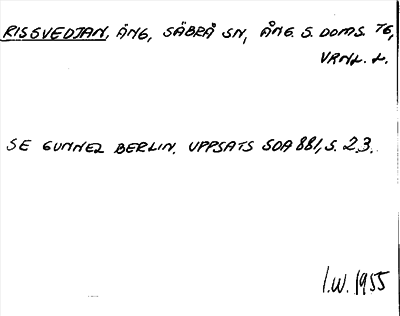 RISSVEDJAN, ÄNG, SÄBRÅ SN, ÅNG. S. DOMS. TG,
VRNL. L.
SE GUNNEL BERLIN. UPPSATS SOA 881, S. 23.
I.W. 1955